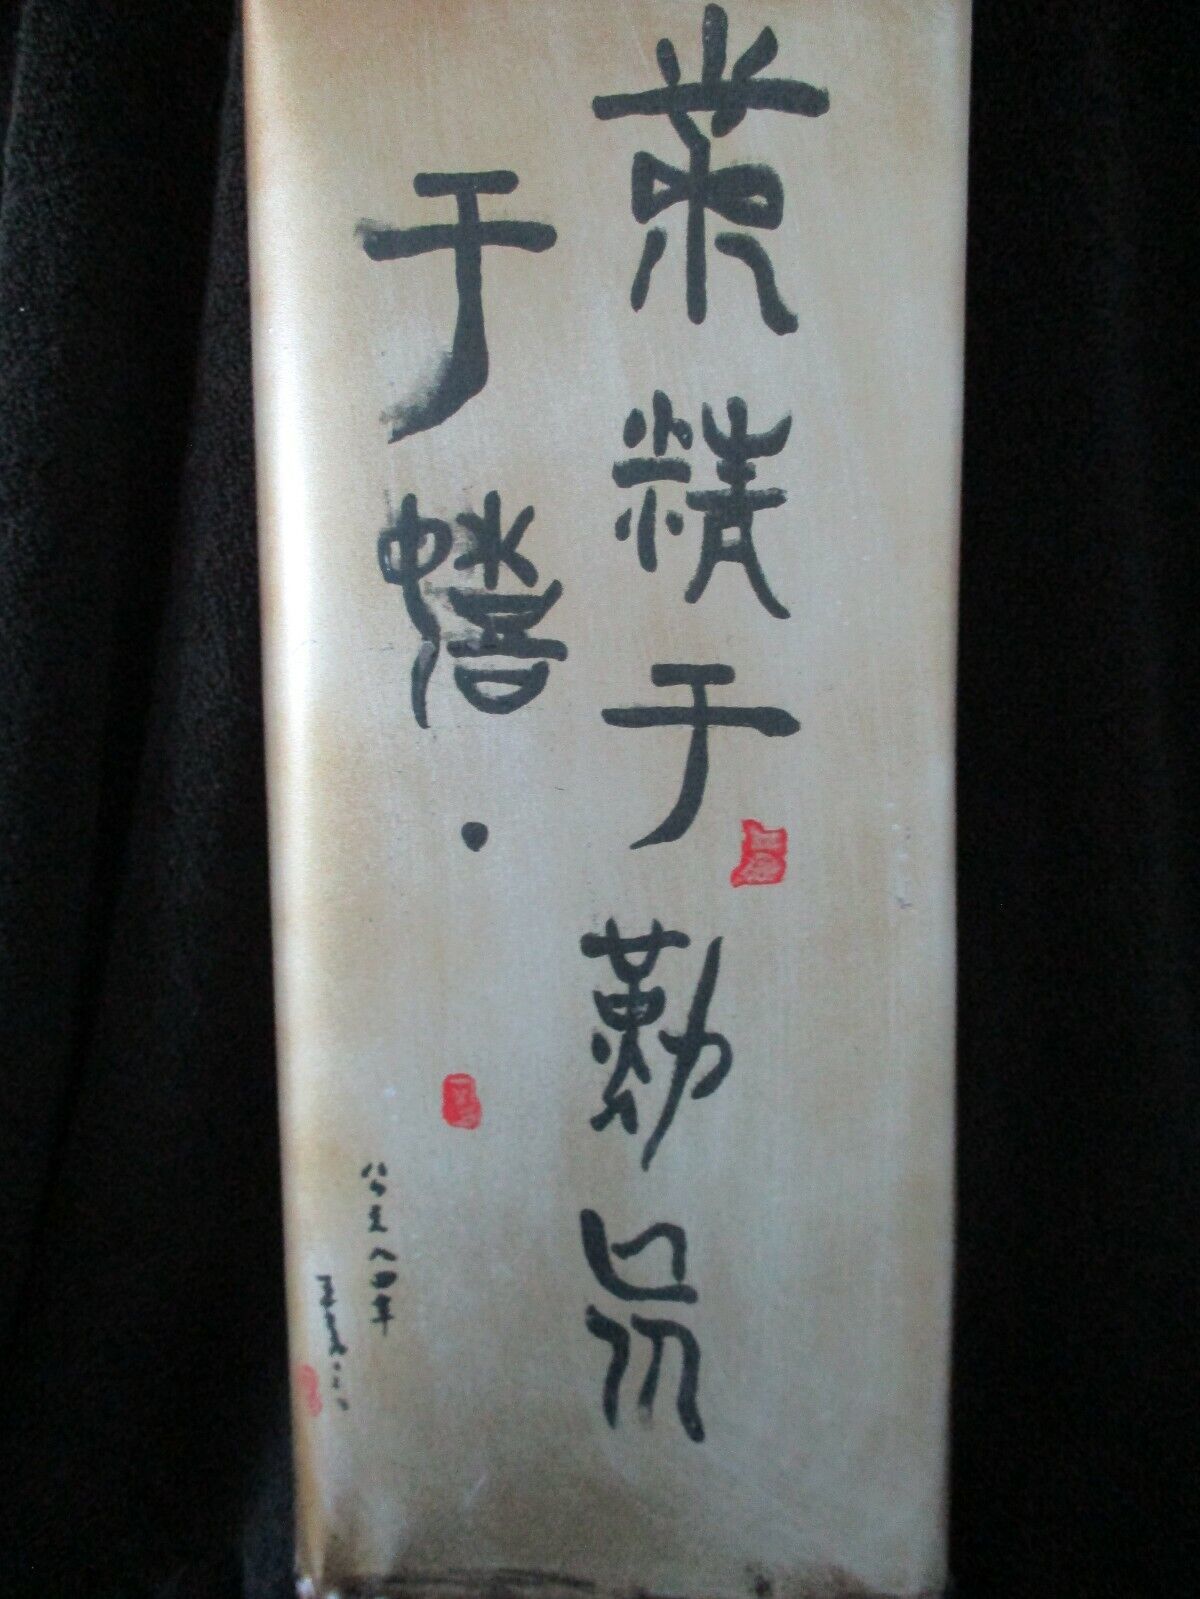 業精于勤巟
于嬉.
公元八四年